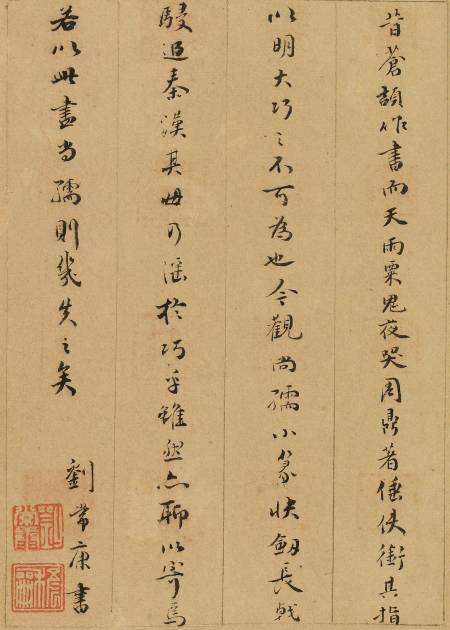 昔蒼頡作書而天雨粟鬼夜哭周鼎著倕使銜其指
以明大巧之不可為也今觀尚孺小篆快劍長戟
駸追秦漢其毋乃滛於巧乎雖然亦聊以寄焉
若以此盡尚孺則幾失之矣
劉常康書